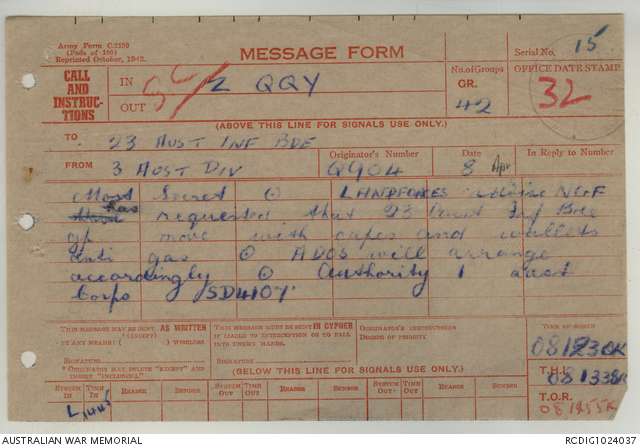 Army Form C.2150
(Pads of 100)
Reprinted October, 1942.
MESSAGE FORM
Serial No. 15
CALL AND INSTRUCTIONS
IN
OUT
Z QQY
No. of Groups
GR.
42
OFFICE DATE STAMP
32
(ABOVE THIS LINE FOR SIGNALS USE ONLY.)
TO 23 AUST INF BDE
FROM 3 AUST DIV
Originator's Number
Q904
Date
8 Apr
In Reply to Number
Most Secret ⊙ LANDFORCES
has requested that 23 Aust Inf Bde
gp move with capes and wallets
anti gas ⊙ ADOS will arrange
accordingly ⊙ Authority 1 aust
Corps SD4107
THIS MESSAGE MAY BE SENT AS WRITTEN
(EXCEPT)
BY ANY MEANS ( ) WIRELESS
SIGNATURE
* ORIGINATOR MAY DELETE "EXCEPT" AND INSERT "INCLUDING."
THIS MESSAGE MUST BE SENT IN CYPHER
IF LIABLE TO INTERCEPTION OR TO FALL INTO ENEMY HANDS.
SIGNATURE
ORIGINATOR'S INSTRUCTIONS
DEGREE OF PRIORITY
TIME OF ORIGIN
081230K
T.H.I.
081338K
T.O.R.
081455K
(BELOW THIS LINE FOR SIGNALS USE ONLY.)
SYSTEM IN TIME IN READER SENDER SYSTEM OUT TIME OUT READER SENDER SYSTEM OUT TIME OUT READER SENDER
L 1445
AUSTRALIAN WAR MEMORIAL
RCDIG1024037